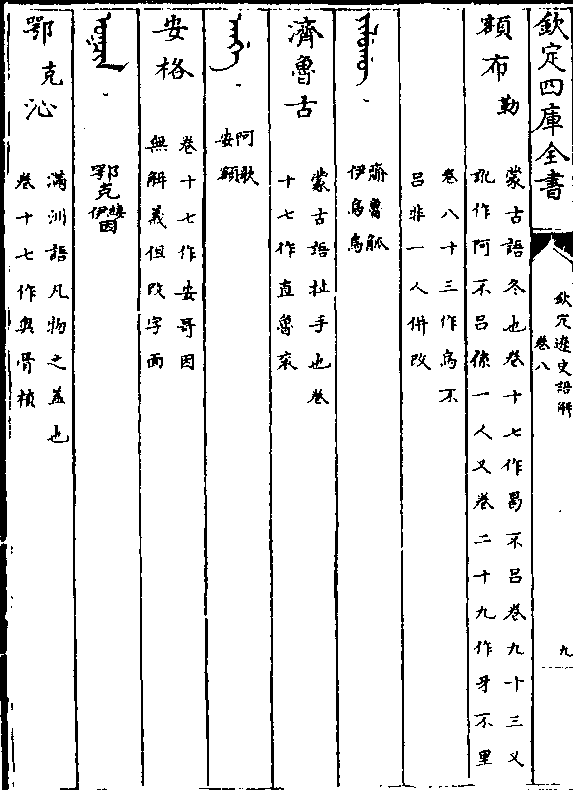 欽定四庫全書
欽定遼史語解
卷八
九
額布勒
蒙古語冬也卷十七作曷不呂卷九十三又
訛作阿不呂係一人又卷二十九作牙不里
卷八十三作烏不
呂非一人併改
齎魯觚
伊烏烏
濟魯古
蒙古語扯手也卷
十七作直魯袞
阿歌
安額
安格
卷十七作安哥因
無解義但改字面
鄂克伊因
鄂克沁
滿洲語凡物之蓋也
卷十七作奧骨楨